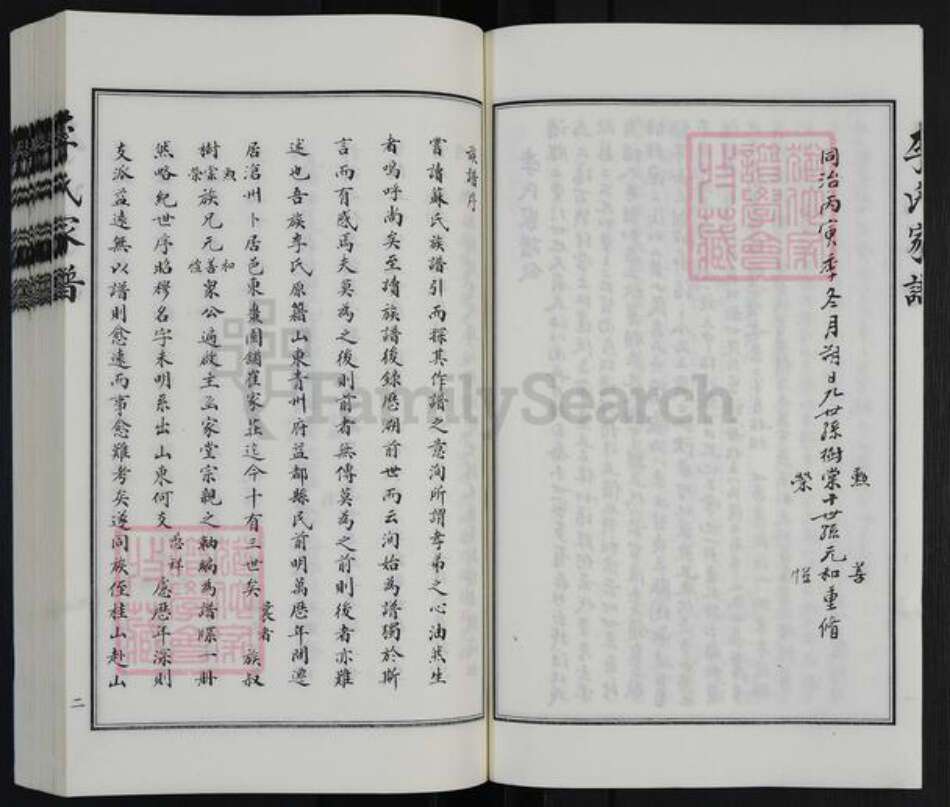 同治丙寅季冬月朔日九世孫樹棠十世孫元和重修
勲 善
榮 愷
族譜序
嘗讀蘇氏族譜引而探其作譜之意洵所謂孝弟之心油然生
者嗚呼尚矣至攜族譜後錄歷溯前世而云洵始為譜獨於斯
言而有感焉夫莫為之後則前者無傳莫為之前則後者亦難
述也吾族李氏原籍山東青州府益都縣民前明萬歷年間遷
居滄州卜居邑東棗園鋪崔家莊迄今十有三世矣 族叔
樹棠族兄元善家公遍收主函家堂宗親之軸編為譜牒一冊
然略紀世序昭穆名字未明系出山東何支 慮歷年深則
支派益遠無以譜則愈遠而事愈難考矣遂同族侄桂山赴山
二
李氏家譜
李氏家譜
FamilySearch